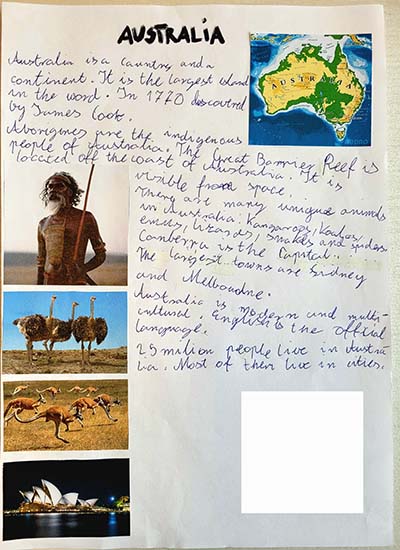 AUSTRALIA
Australia is a country and a
continent. It is the largest island
in the word. In 1770 discovered
by James Cook.
Aborigines are the indigenous
people of Australia. The Great Barrier Reef is
located off the coast of Australia. It is
visible from space.
There are many unique animals
in Australia: Kangaroos, koalas,
emus, lizards, snakes and spiders.
Canberra is the Capital.
The largest towns are Sidney
and Melbourne.
Australia is modern and multi-
cultural. English is the official
language.
25 million people live in Austra
lia. Most of them live in cities.
AUSTRALIA